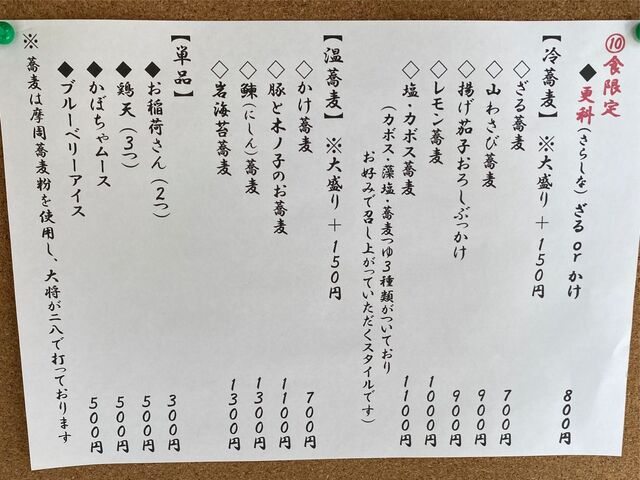 ⑩食限定
◆更科(さらしな)ざる or かけ 800円
【冷蕎麦】 ※大盛り+150円
◇ざる蕎麦 700円
◇山わさび蕎麦 900円
◇揚げ茄子おろしぶっかけ 900円
◇レモン蕎麦 1000円
◇塩・カボス蕎麦 1100円
(カボス・藻塩・蕎麦つゆ3種類がついており
お好みで召し上がっていただくスタイルです)
【温蕎麦】 ※大盛り+150円
◇かけ蕎麦 700円
◇豚と木ノ子のお蕎麦 1100円
◇鰊(にしん)蕎麦 1300円
◇岩海苔蕎麦 1300円
【単品】
◆お稲荷さん(2つ) 300円
◆鶏天(3つ) 500円
◆かぼちゃムース 500円
◆ブルーベリーアイス 500円
※蕎麦は摩周蕎麦粉を使用し、大将が二八で打っております